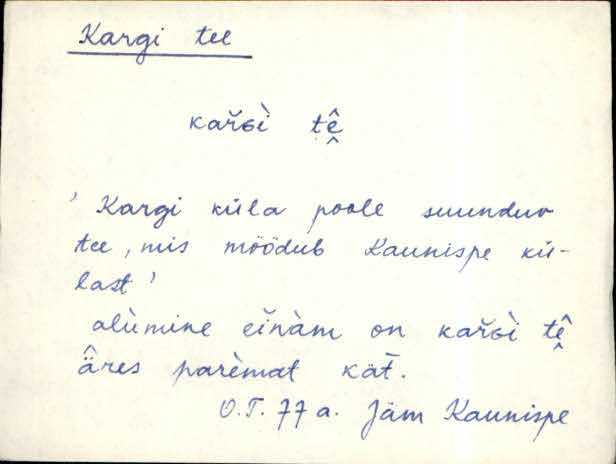 Kargi tee
kařɢì tê̬
' Kargi küla poole suunduv
tee, mis möödub Kaunispe kü-
last '
alùmine eĭnàm on kařɢì tê̬
â̈res parèmat kät̄.
O.T. 77 a. Jäm Kaunispe